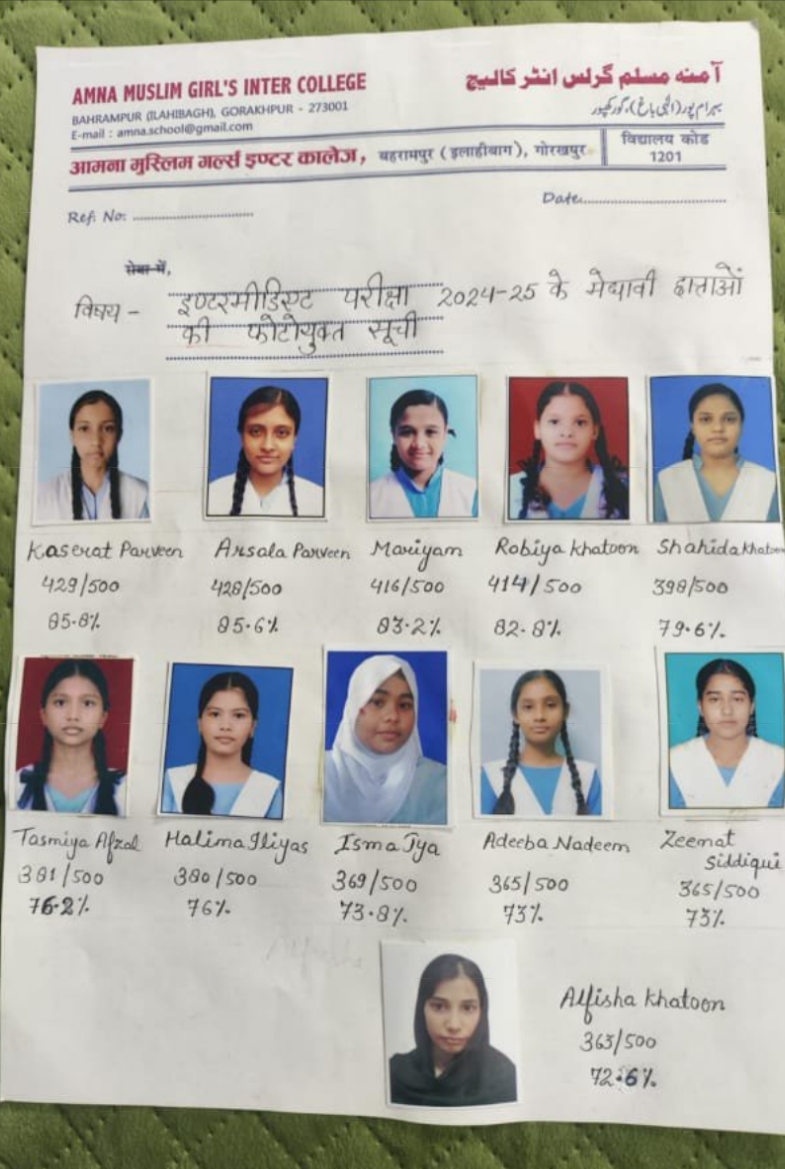 AMNA MUSLIM GIRL'S INTER COLLEGE
آمنہ مسلم گرلس انٹر کالیج
BAHRAMPUR (ILAHIBAGH), GORAKHPUR - 273001
بہرام پور(الٰہی باغ)، گورکھپور
E-mail : amna.school@gmail.com
आमना मुस्लिम गर्ल्स इण्टर कालेज, बहरामपुर (इलाहीबाग), गोरखपुर
विद्यालय कोड
1201
Ref: No:
Date
सेवा में,
विषय - इण्टरमीडिएट परीक्षा 2024-25 के मेधावी छात्राओं
की फोटोयुक्त सूची
Kaserat Parveen Arsala Parveen Mariyam Robiya Khatoon Shahida Khatoon
429/500 428/500 416/500 414/500 398/500
85.8% 85.6% 83.2% 82.8% 79.6%
Tasmiya Afzal Halima Iliyas Isma Jya Adeeba Nadeem Zeenat Siddiqui
381/500 380/500 369/500 365/500 365/500
76.2% 76% 73.8% 73% 73%
Alfisha Khatoon
363/500
72.6%